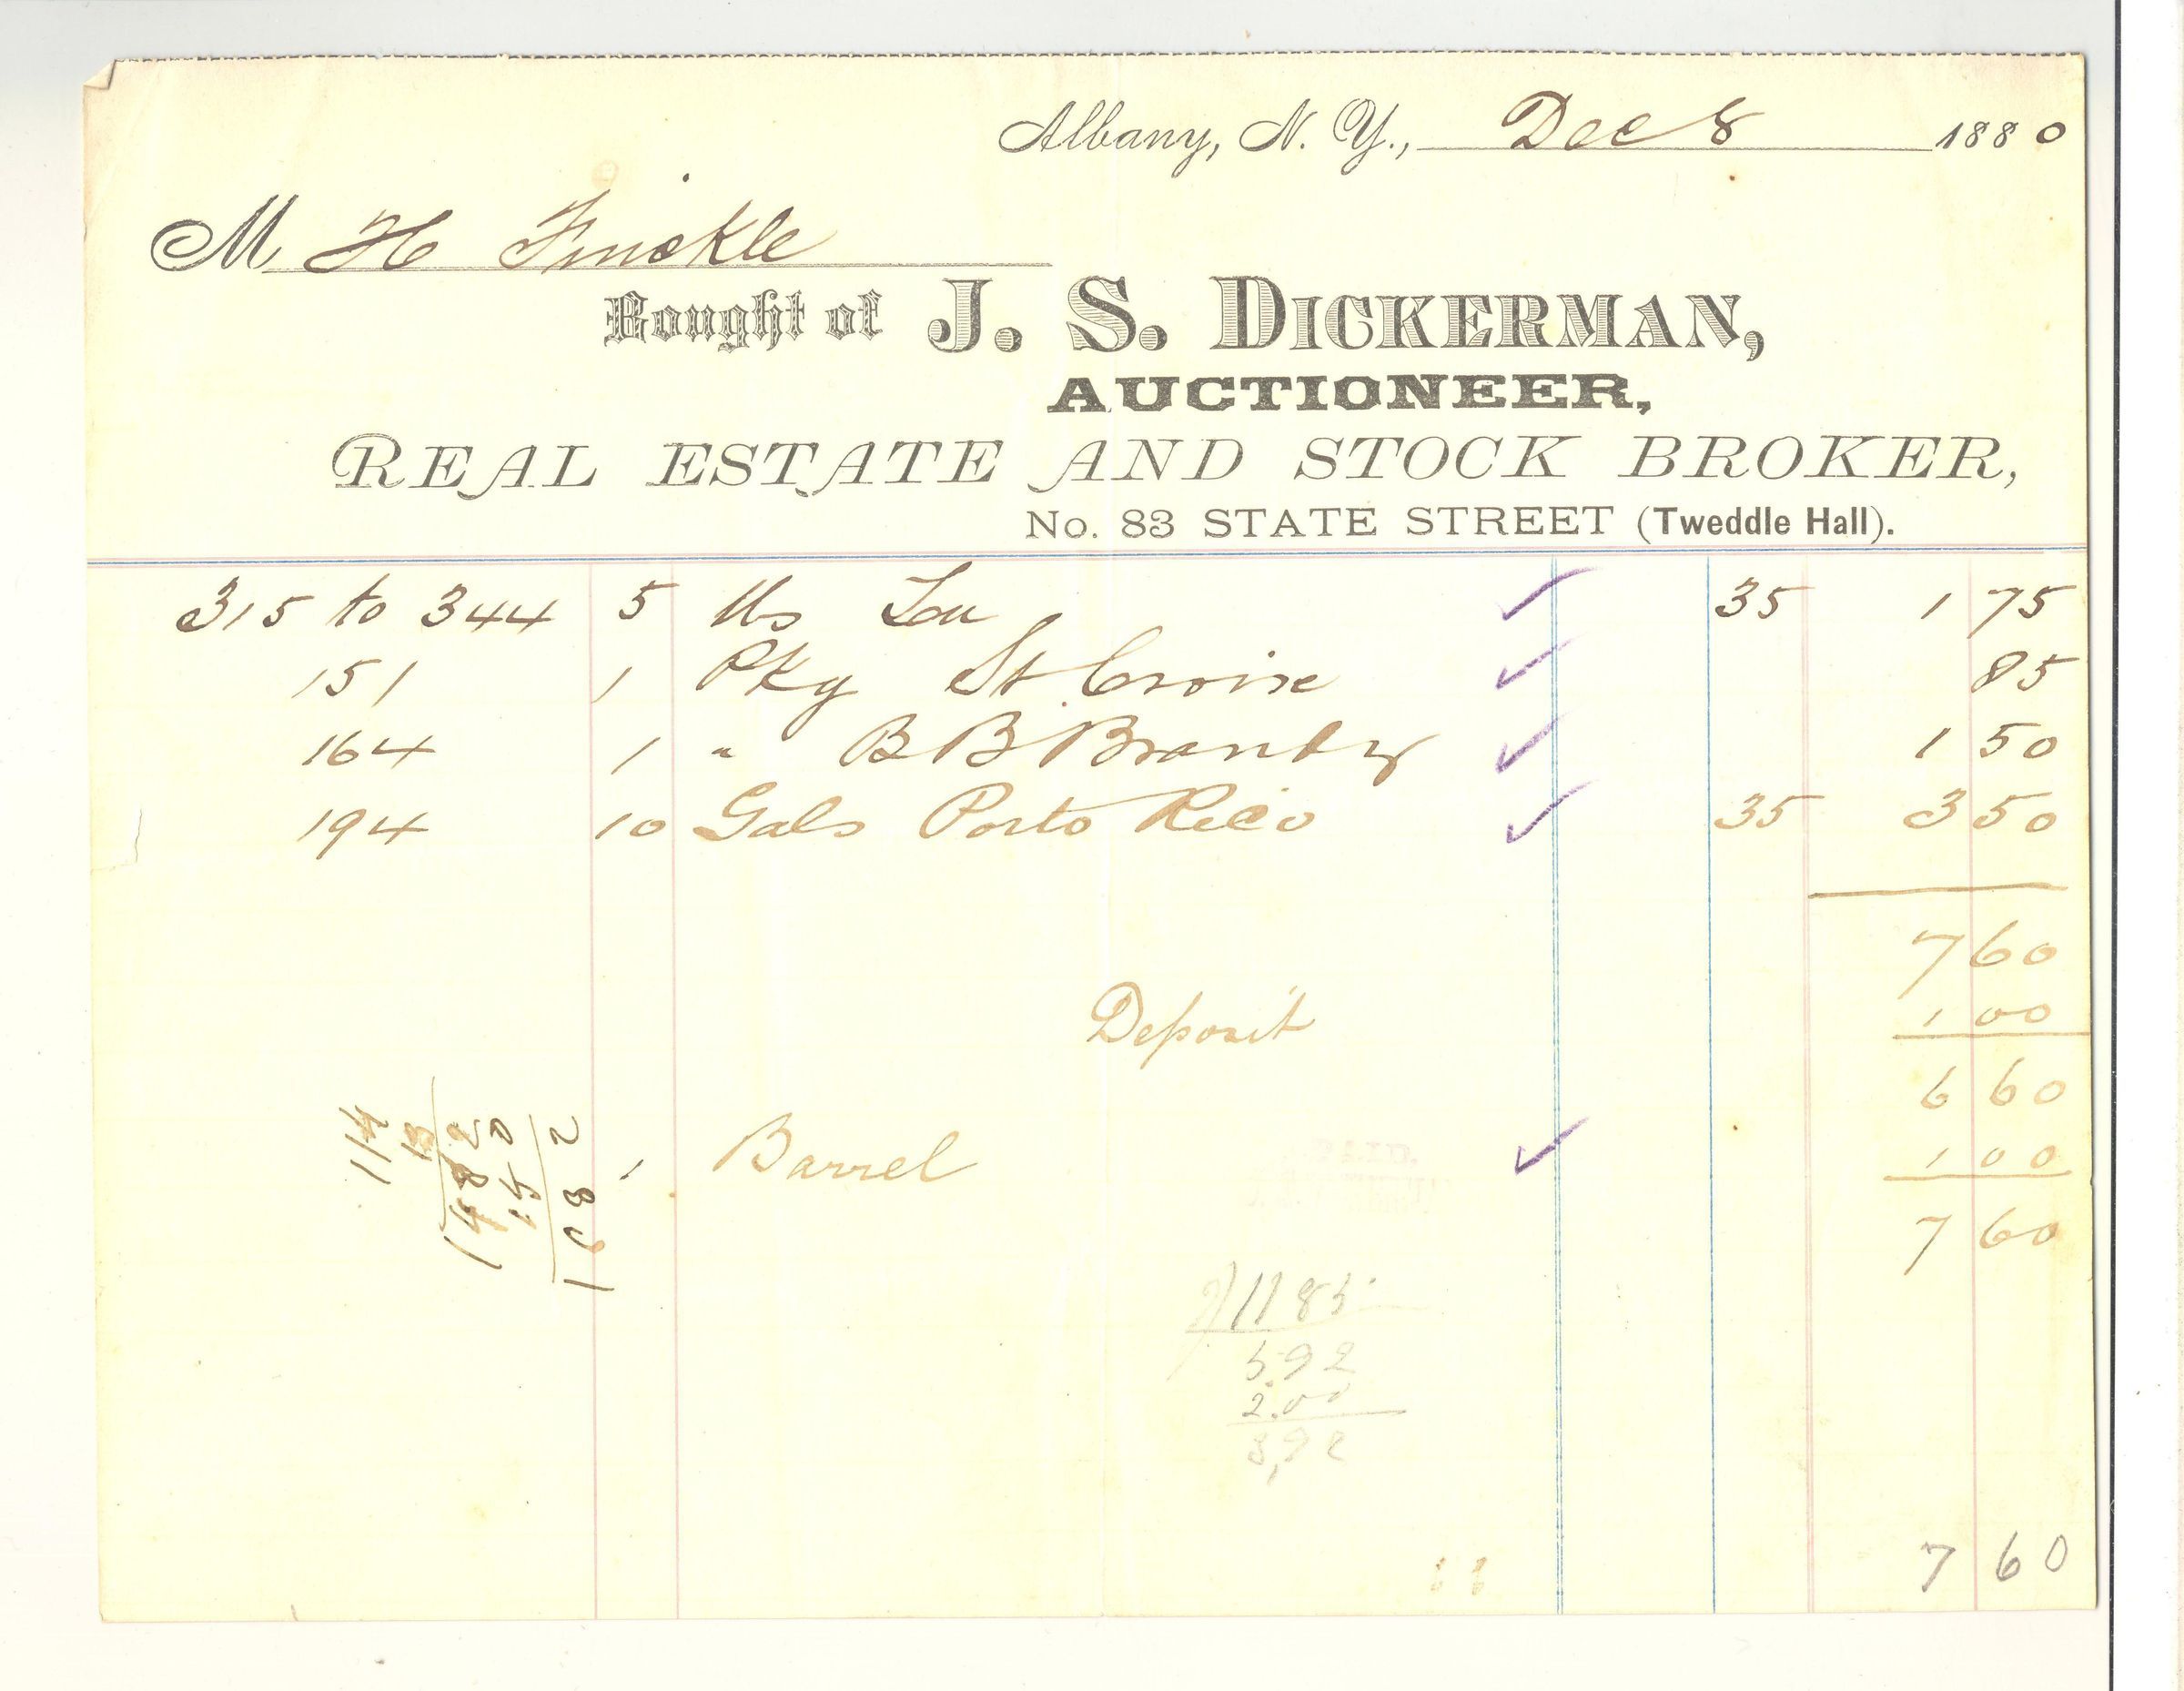 Albany, N. Y., Dec 8 1880
M H Finckle
Bought of J. S. DICKERMAN,
AUCTIONEER,
REAL ESTATE AND STOCK BROKER,
No. 83 STATE STREET (Tweddle Hall).
315 to 344 5 35 1 75
151 1 Pkg St Croise 85
164 1 " B B Brandy 1 50
194 10 Gals Porto Rico 35 3 50
7 60
Deposit 1 00
6 60
1 Barrel 1 00
7 60
PAID.
2)1185
5.92
2.00
3,92
7 60